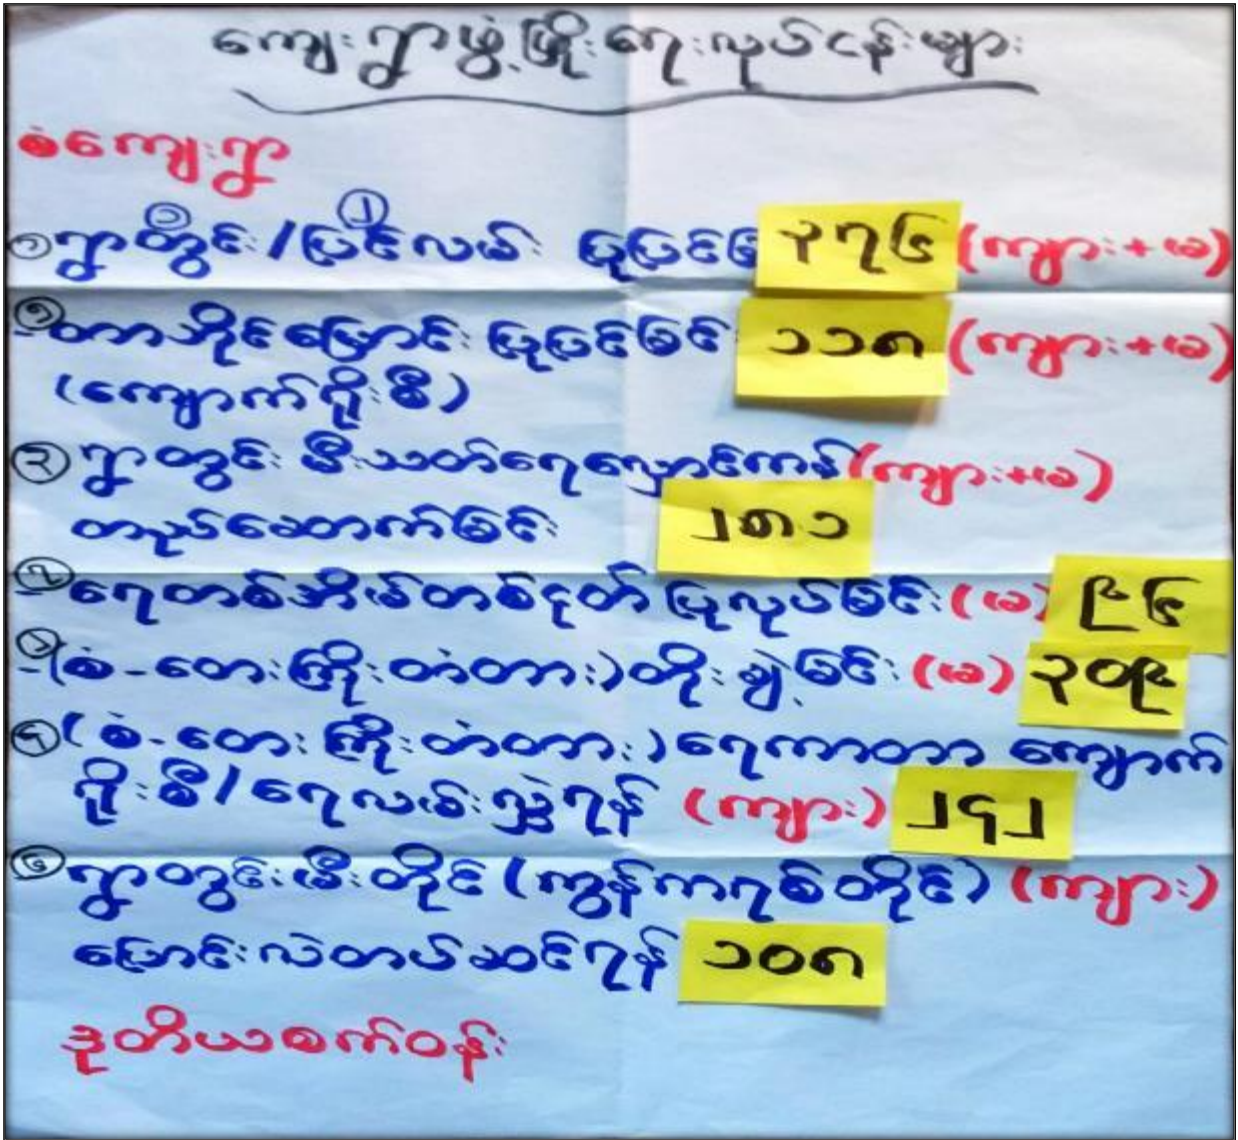 ကျေးရွာဖွံ့ဖြိုးရေးလုပ်ငန်းများ
စံကျေးရွာ
၁ ၂
ရွာတွင်း/ပြင်လမ်း ပြုပြင် ၃၇၆ (ကျား+မ)
၅ တာဘိုင်မြောင်း ပြုပြင်ခြင်း ၁၁၈ (ကျား+မ)
(ကျောက်ရိုးစီ)
၃ ရွာတွင်း မီးသတ်ရေလှောင်ကန် (ကျား+မ)
တည်ဆောက်ခြင်း ၂၈၁
၇ ရေတစ်အိမ်တစ်ငုတ် ပြုလုပ်ခြင်း (မ) ၉၆
၂ (စံ-တေးကြိုးတံတား)တိုးချဲ့ခြင်း (မ) ၃၀၉
၄ (စံ-တေးကြိုးတံတား)ရေကာတာ ကျောက်
ရိုးစီ/ရေလမ်းညွှဲရန် (ကျား) ၂၄၂
၆ ရွာတွင်းမီးတိုင် (ကွန်ကရစ်တိုင်) (ကျား)
ပြောင်းလဲတပ်ဆင်ရန် ၁၀၈
ဒုတိယစက်ဝန်း